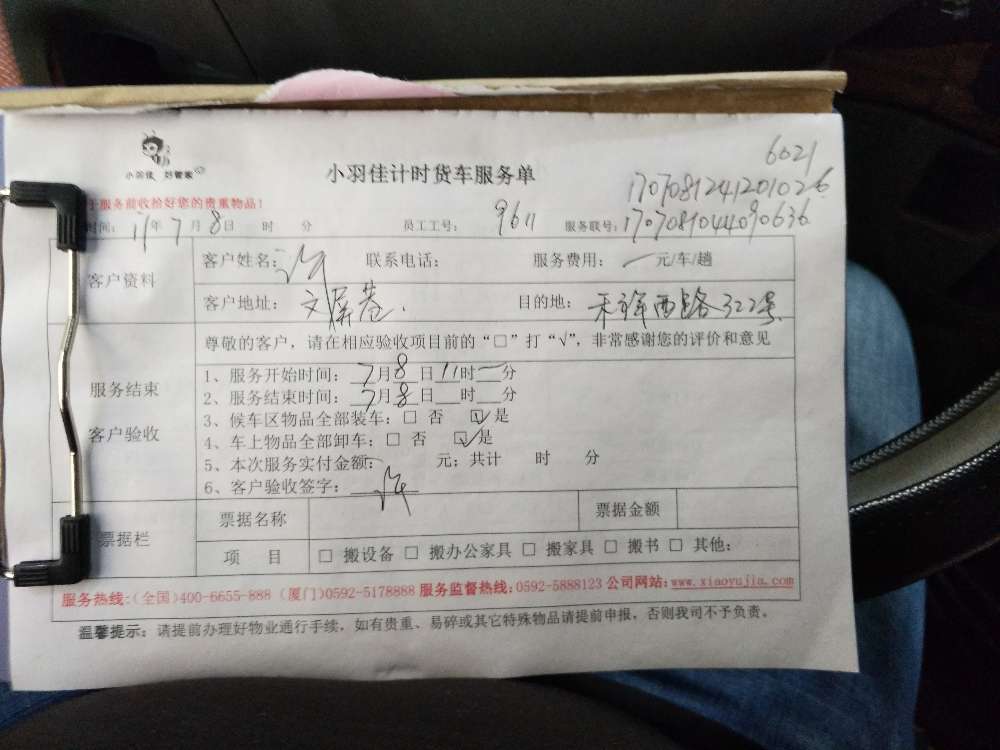 小羽佳 好管家
小羽佳计时货车服务单
6021
1707081241201026
服务前收拾好您的贵重物品!
时间: 17年 7月 8日 时 分 员工工号: 9611 服务联号: 1707081044090636
客户资料
客户姓名: 联系电话: 服务费用: 元/车/趟
客户地址: 文屏巷. 目的地: 禾祥西路322号.
尊敬的客户, 请在相应验收项目前的“□”打“√”, 非常感谢您的评价和意见
服务结束
客户验收
1、服务开始时间: 7月8日11时 分
2、服务结束时间: 7月8日 时 分
3、候车区物品全部装车: □ 否 ☑ 是
4、车上物品全部卸车: □ 否 ☑ 是
5、本次服务实付金额: 元; 共计 时 分
6、客户验收签字:
票据栏
票据名称 票据金额
项 目 □ 搬设备 □ 搬办公家具 □ 搬家具 □ 搬书 □ 其他:
服务热线:(全国)400-6655-888 (厦门)0592-5178888 服务监督热线:0592-5888123 公司网站:www.xiaoyujia.com
温馨提示: 请提前办理好物业通行手续, 如有贵重、易碎或其它特殊物品请提前申报, 否则我司不予负责。